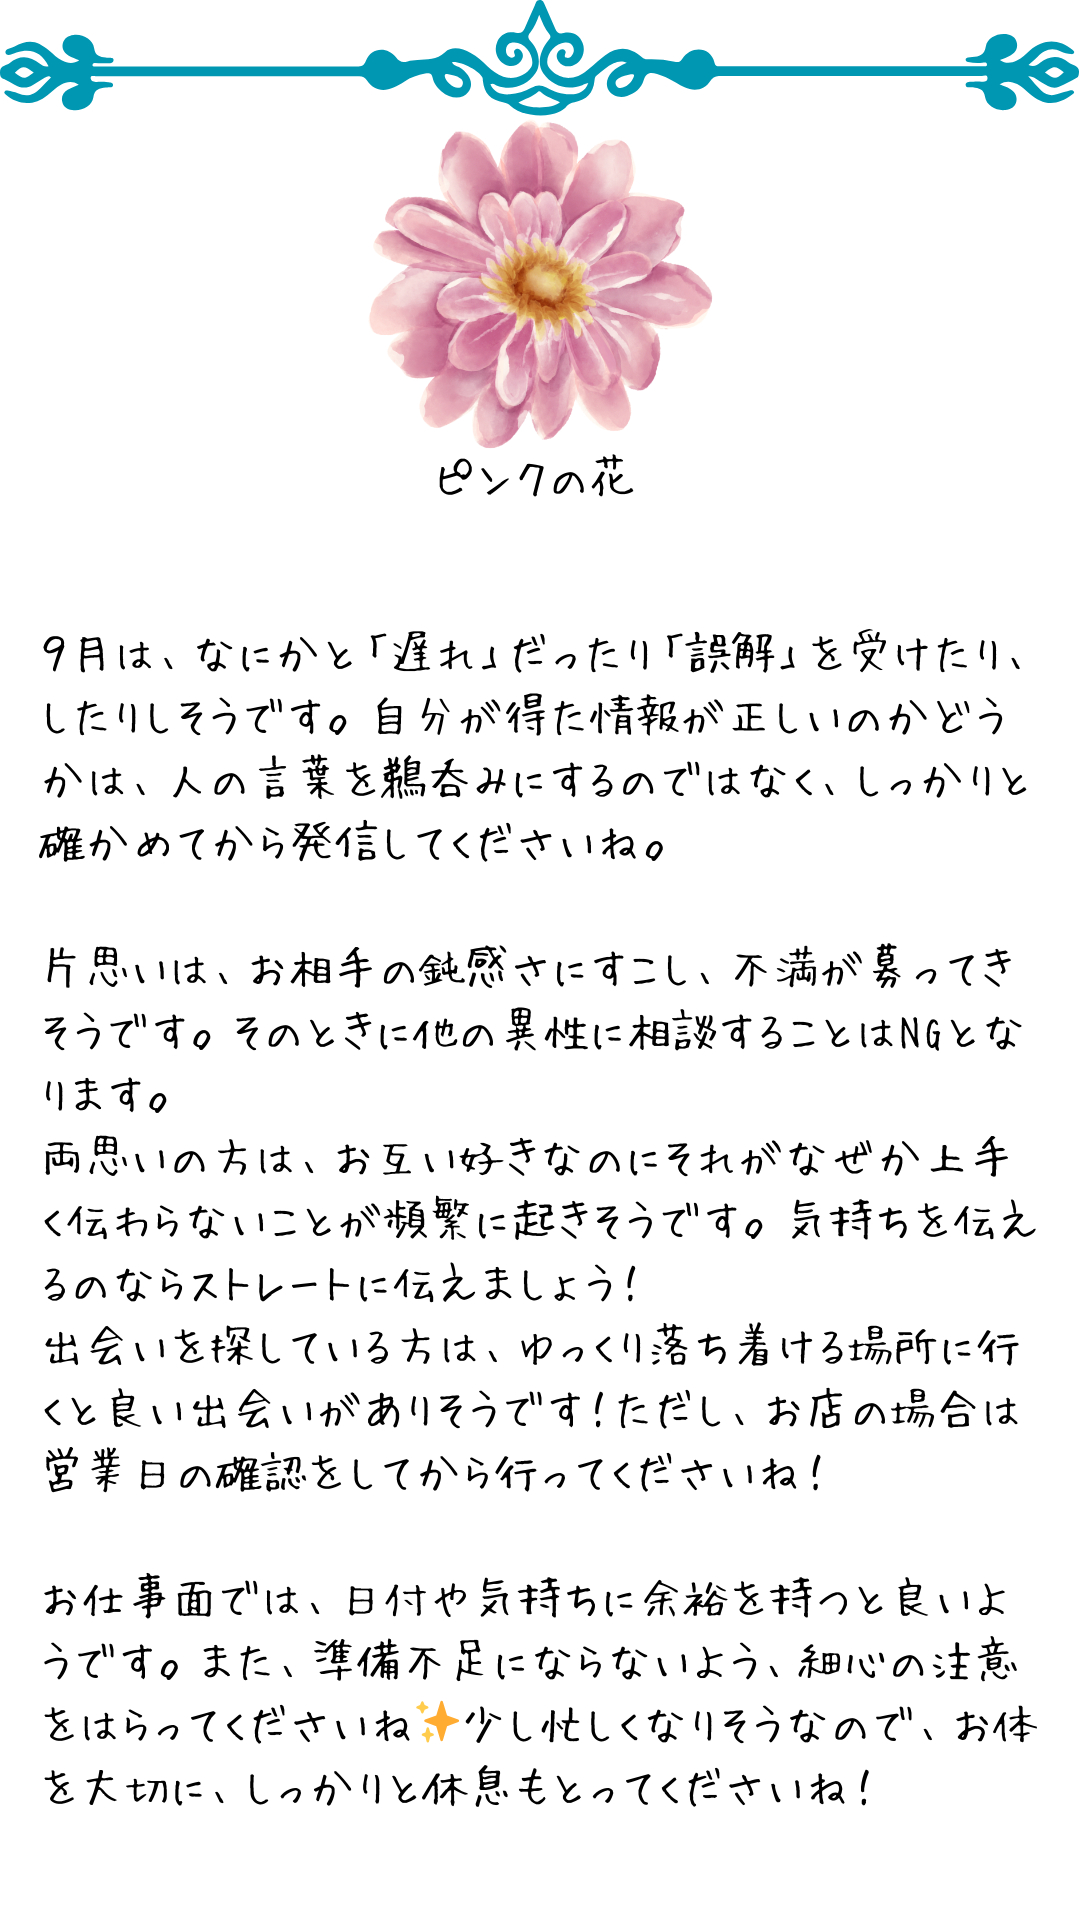 ピンクの花
9月は、なにかと「遅れ」だったり「誤解」を受けたり、
したりしそうです。自分が得た情報が正しいのかどう
かは、人の言葉を鵜呑みにするのではなく、しっかりと
確かめてから発信してくださいね。
片思いは、お相手の鈍感さにすこし、不満が募ってき
そうです。そのときに他の異性に相談することはNGとな
ります。
両思いの方は、お互い好きなのにそれがなぜか上手
く伝わらないことが頻繁に起きそうです。気持ちを伝え
るのならストレートに伝えましょう！
出会いを探している方は、ゆっくり落ち着ける場所に行
くと良い出会いがありそうです！ただし、お店の場合は
営業日の確認をしてから行ってくださいね！
お仕事面では、日付や気持ちに余裕を持つと良いよ
うです。また、準備不足にならないよう、細心の注意
をはらってくださいね✨少し忙しくなりそうなので、お体
を大切に、しっかりと休息もとってくださいね！